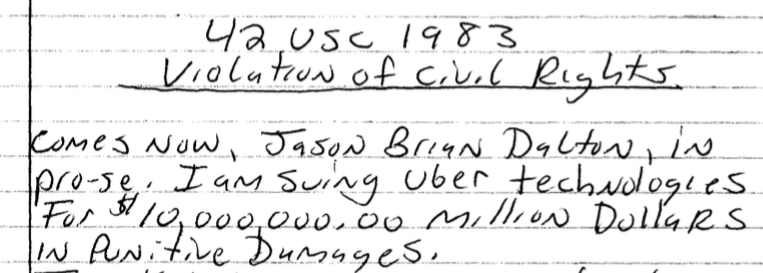 42 USC 1983
Violation of Civil Rights
Comes Now, Jason Brian Dalton, in
pro-se. I am suing Uber technologies
For $10,000,000.00 Million Dollars
in Punitive Damages.